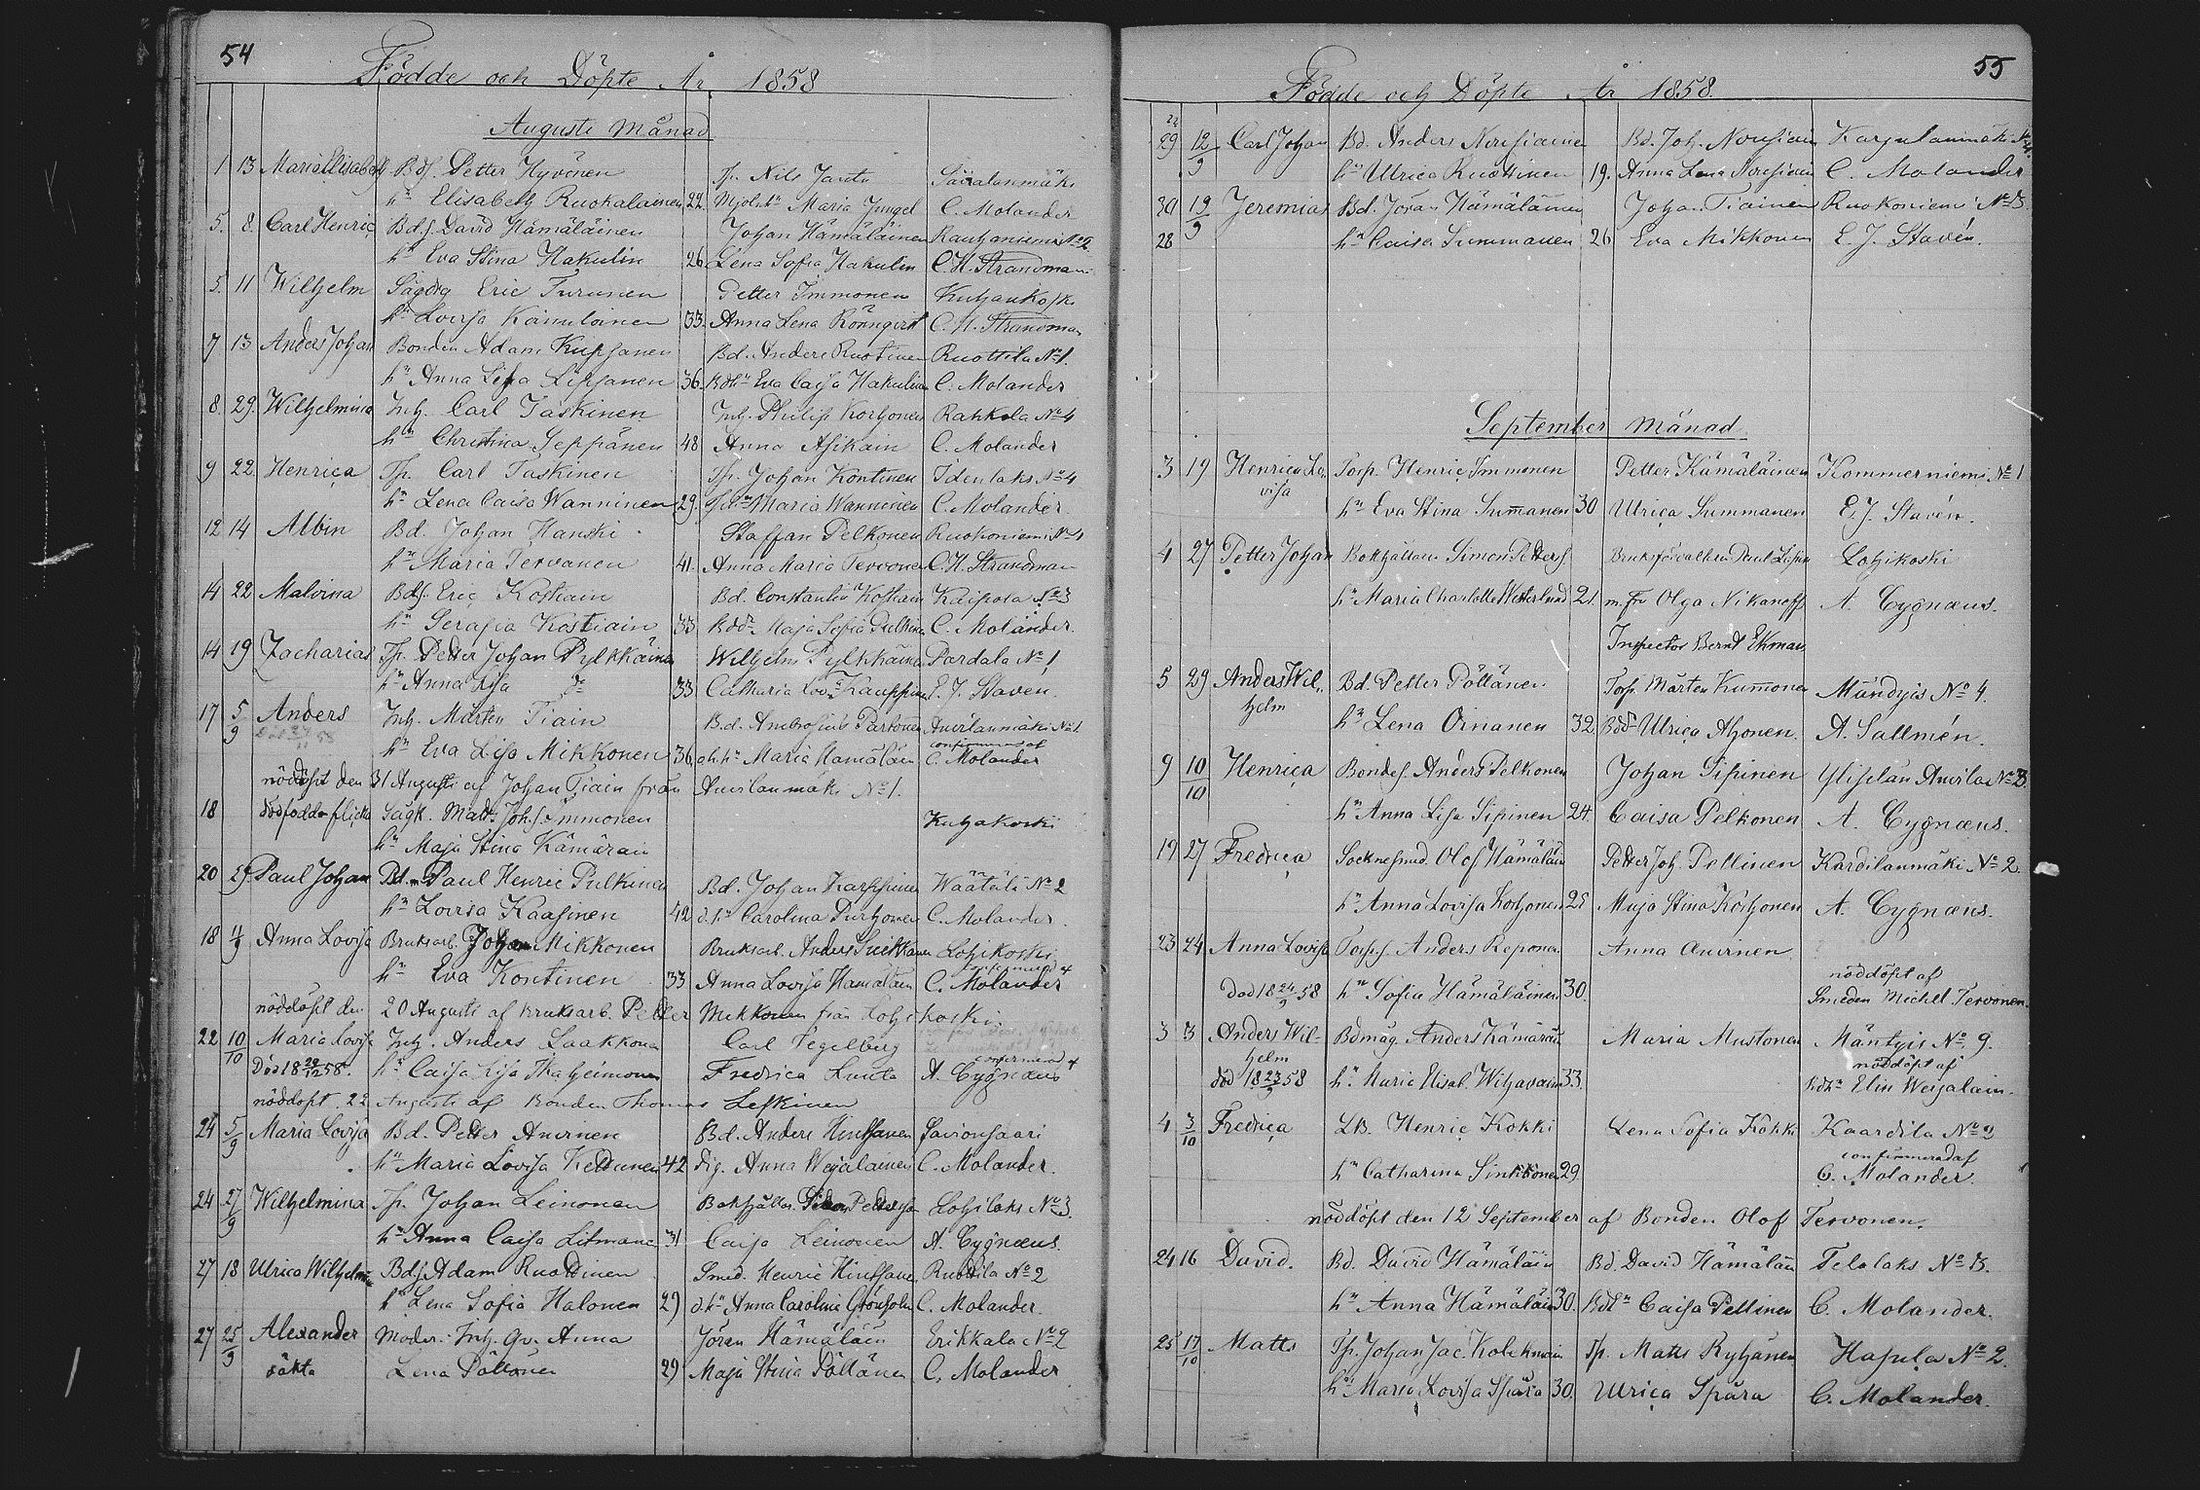 54
Födde och Döpte År 1858
Augusti Månad
1 13 Maria Elisabeth Bdf. Petter Hyvönen Tp. Nils Jantu Säiealanmäki
hn Elisabeth Ruokalainen 22. Maria Jungel C. Molander
5. 8. Carl Henric Bds. David Hämäläinen Johan Hämäläinen Rauhaniemi No 2
hn Eva Stina Hakulin 26 Lena Sofia Hakulin C. H. Strandman
5. 11 Wilhelm Sågdrg Eric Turunen Petter Immonen Kuhankoski
hn Lovisa Kämäläinen 33. Anna Lena Rönnqvist C. H. Strandman
7 13 Anders Johan Bonden Adam Kupsanen Bd. Anders Ruotinen Ruottila No 1.
hn Anna Lisa Lipsanen 36. Bdhn Eva Caisa Hakulin C. Molander
8. 29. Wilhelmina Inh. Carl Taskinen Inh. Philip Korhonen Rahkola No 4
hn Christina Seppänen 48 Anna Asikain C. Molander
9 22 Henrica Tp. Carl Taskinen Tp. Johan Kontinen Idenlaks No 4
hn Lena Caisa Wanninen 29. Maria Wanninen C. Molander
12 14 Albin Bd. Johan Hanski Staffan Pelkonen Ruokoniemi No 1
hn Maria Tervanen 41. Anna Maria Tervonen C. H. Strandman
14 22 Malvina Bds. Eric Kostiain Bd. Constantin Kostiain Kaipola No 3
hn Serafia Kostiain 33 Bddr Maja Sofia Pulkin C. Molander.
14 19 Zacharias Tp. Petter Johan Pylkkäinen Wilhelm Pylkkäinen Pardala No 1
hn Anna Lisa do 33 Catharia Lov. Kauppinen E. J. Staven.
17 5/9 Anders Inh. Mårten Tiain Bd. Ambrosius Partonen Auvilanmäki No 1
hn Eva Lisa Mikkonen 36 d.h. hn Maria Hämäläin confirmerad af C. Molander
nöddöpt den 31 Augusti af Johan Tiain från Auvilanmäki No 1.
18 dödfödda flicka Sågk. Matts Johs. Immonen Kuhakoski
hn Maja Stina Kämärain
20 29 Paul Johan Bd. Paul Henric Pulkinen Bd. Johan Karppinen Wäätälä No 2
hn Lovisa Kaasinen 42 d.hn Carolina Purhonen C. Molander
18 4/9 Anna Lovisa Bruksarb. Johan Mikkonen Bruksarb. Anders Lohikoski
hn Eva Kontinen 33 Anna Lovisa Hämäläin confirmerad af C. Molander
nöddöpt den 20 Augusti af Bruksarb. Petter Mikkonen från Lohikoski
22 10/10 Maria Lovisa Inh. Anders Laakkonen Carl Tegelberg
Död 18 29/12 58. hn Caisa Lisa Fredrica confirmerad af A. Cygnæus
nöddöpt. 22 Augusti af Bonden Thomas Leskinen
24 5/9 Maria Lovisa Bd. Petter Auvinen Bd. Anders Hinkkanen Savionsaari
hn Maria Lovisa Kettunen 42 Pig. Anna Weijalainen C. Molander.
24 27/9 Wilhelmina Tp. Johan Leinonen Bokhållar. Simon Petterson Lohilaks No 3.
hn Anna Caisa Litmanen 31 Caisa Leinonen A. Cygnæus.
27 18 Ulrica Wilhelmin Bds. Adam Ruottinen Smed. Henric Hinkkanen Ruottila No 2
hn Lena Sofia Halonen 29 d.hn Anna Carolina Grönholm C. Molander.
27 25/9 Alexander Moder. Inh. Qv. Anna Jören Hämäläin Erikkala No 2
oäkta Lena Pöllänen 29 Maja Stina Pöllänen C. Molander
55
Födde och Döpte År 1858.
24
29 12/9 Carl Johan Bd. Anders Nousiainen Bd. Joh. Nousiain Karjulanmäki No 4.
hn Ulrica Ruottinen 19. Anna Lena Nousiain C. Molander
30 19/9 Jeremias Bd. Jöran Hämäläinen Johan Tiainen Ruokoniemi No 3.
28 hn Caisa Summanen 26 Eva Mikkonen E. J. Stavén.
September Månad
3 19 Henrica Lo- Torp. Henric Immonen Petter Kämäläinen Kommerniemi No 1
visa
hn Eva Stina Summanen 30 Ulrica Summanen E. J. Stavén.
4 27 Petter Johan Bokhållaren Simon Petters. Bruksförvaltaren Paul Lohikoski
hn Maria Charlotte Wetterlund 21. m. fru Olga Nikanoff A. Cygnæus.
Inspector Bernt Ekman
5 29 Anders Wil- Bd. Petter Pöllänen Torp. Mårten Kummonen Mändyis No 4.
helm
hn Lena Oinanen 32 Bddr Ulrica Ahonen. A. Sallmén.
9 10/10 Henrica Bondes. Anders Pelkonen Johan Sipinen Auvila No 3.
hn Anna Lisa Sipinen 24. Caisa Pelkonen A. Cygnæus.
19 27 Fredrica Socknesmed. Olof Hämäläin Petter Joh. Pellinen Kardilanmäki No 2.
hn Anna Lovisa Korhonen 25 Maja Stina Korhonen A. Cygnæus.
23 24 Anna Lovisa Torps. Anders Reponen Anna Auvinen
Död 18 24/9 58 hn Sofia Hämäläinen 30. nöddöpt af
Smeden Michel Tervonen.
3 3 Anders Wil- Bdmåg. Anders Kämäräin Maria Mustonen Mäntyis No 9.
helm
död 18 23/9 58 hn Maria Elisab. Wihavain 33. nöddöpt af
Bdhn Elin Weijalain.
4 3/10 Fredrica LB. Henric Kokki Lena Sofia Kokki Kaardila No 2
hn Catharina Sinkkonen 29. confirmerad af
C. Molander.
nöddöpt den 12 September af Bonden Olof Tervonen.
24 16 David. Bd. David Hämäläin Bd. David Hämäläin Telalaks No 3.
hn Anna Hämäläin 30. Bdhn Caisa Pellinen C. Molander.
25 17/10 Matts Tp. Johan Jac. Kolehmain Tp. Matts Ryhänen Hapula No 2.
hn Maria Lovisa Spåra 30. Ulrica Spåra C. Molander.